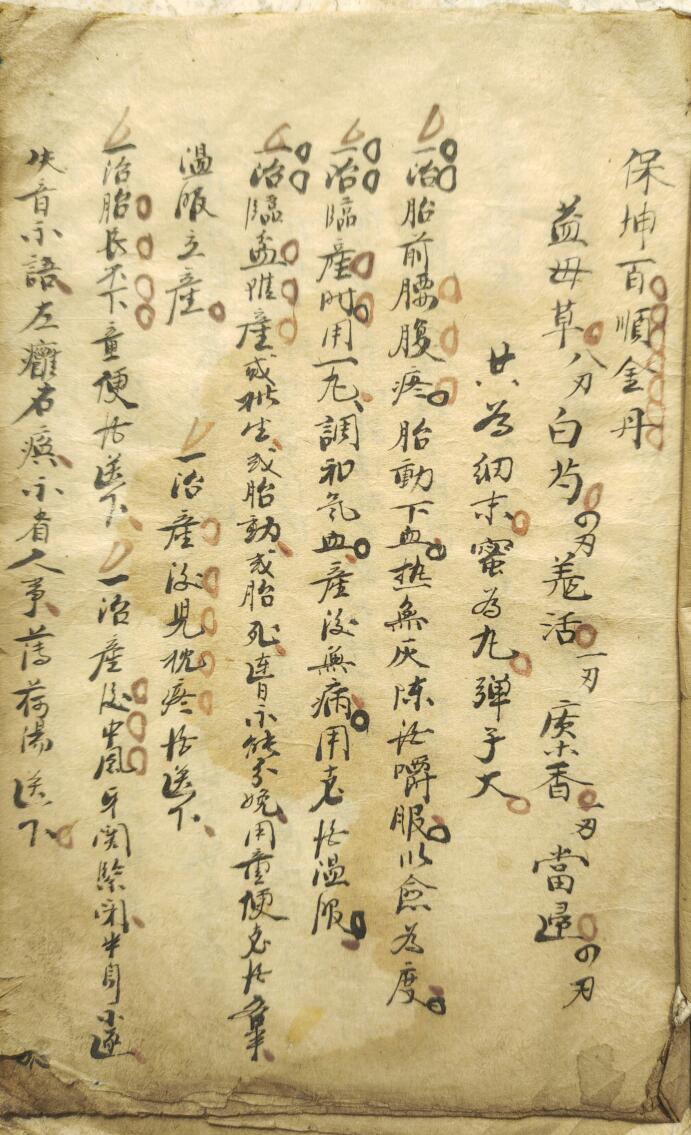 保坤百順金丹
益母草八刃白芍の刃羌活一刃廣木香一刃當歸の刃
共為細末蜜為丸彈子大
一治胎前腰腹疼胎動下血熱無灰陳酒嚼服以愈為度
一治臨產時用一丸調和氣血產後無病用老酒溫服
一治臨盆難產或橫生或胎動或胎死連日不能分娩用童便老酒
溫服立產 一治產後兒枕疼酒送下
一治胎衣不下童便酒送下 一治產後中風牙関緊閉半身不遂
失音不語左癱右瘓不省人事薄荷湯送下